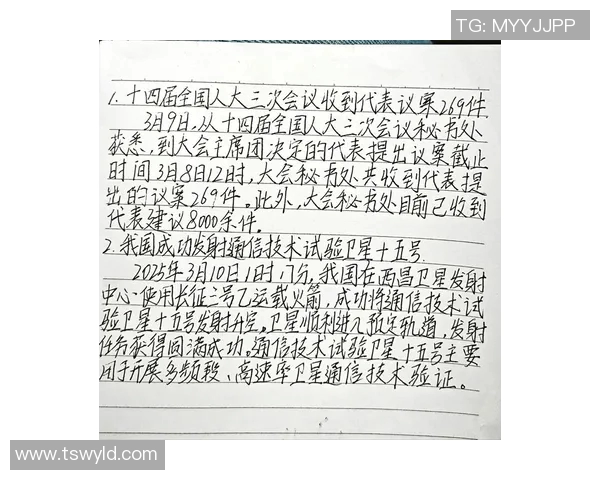 TG: MYYJJPP
1. 十四届全国人大三次会议收到代表议案269件.
3月9日,从十四届全国人大三次会议秘书处
获悉,到大会主席团决定的代表提出议案截止
时间3月8日12时,大会秘书处共收到代表提
出的议案269件。此外,大会秘书处目前已收到
代表建议8000余件。
2. 我国成功发射通信技术试验卫星十五号.
2025年3月10日1时17分,我国在西昌卫星发射
中心使用长征三号乙运载火箭,成功将通信技术试
验卫星十五号发射升空。卫星顺利进入预定轨道,发射
任务获得圆满成功。通信技术试验卫星十五号主要
用于开展多频段、高速率卫星通信技术验证。
www.tswyld.com